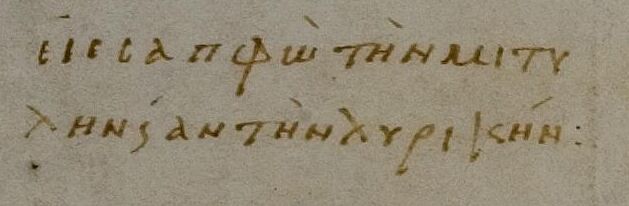 εἰς σαπφὼ τὴν μιτυ
ληνϛ́αν τὴν λυρικὴν: